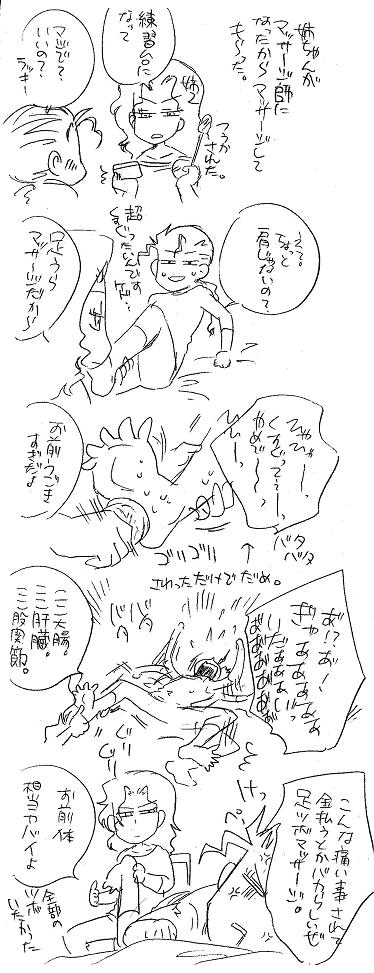 姉ちゃんが
マッサージ師に
なったからマッサージして
もらった。
練習台に
なって
姉
マジで?
いいの?
ラッキー
つうか
された。
えっ。
ちょっと
肩じゃないの?
超
くすぐったいんです
けど…
足うら
マッサージだから
弟
ひゃひゃーっ、
くすぐってぇーっ
やめでーっ
ひーっ
バタ
バタ
お前うごき
すぎだよ
ゴリゴリ
↑
さわっただけでだめ。
あ!?あ!
ぎゃああああああ
いだぁぁぁいっ
ああああああ
バタ
バタ
ここ大腸。
ここ肝臓。
ここ股関節。
ぐり
ぐり
こんな痛い事されて
金払うとかバカらしいぜ
足ツボマッサージ。
けっ
お前体
相当ヤバイよ
全部の
ツボ
いたかった